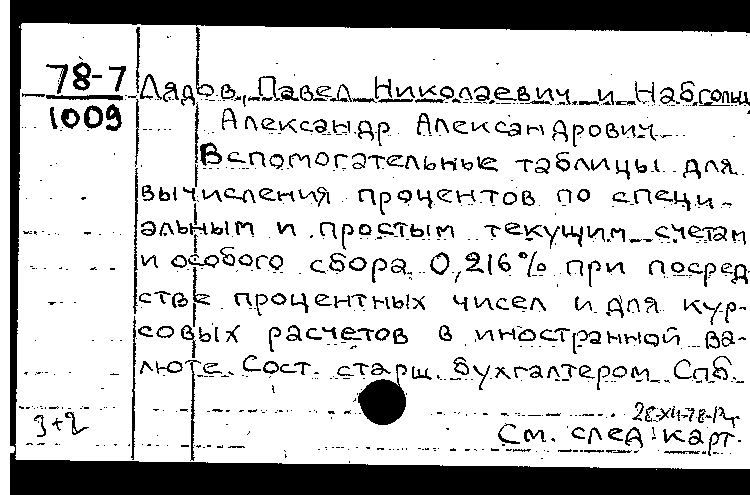 78-7
1009
Лядов, Павел Николаевич и Набгольц,
Александр Александрович.
Вспомогательные таблицы для
вычисления процентов по специ-
альным и простым текущим счетам
и особого сбора 0,216% при посред
стве процентных чисел и для кур-
совых расчетов в иностранной ва-
люте. Сост. старш. бухгалтером Спб.
3+2
См. след. карт.